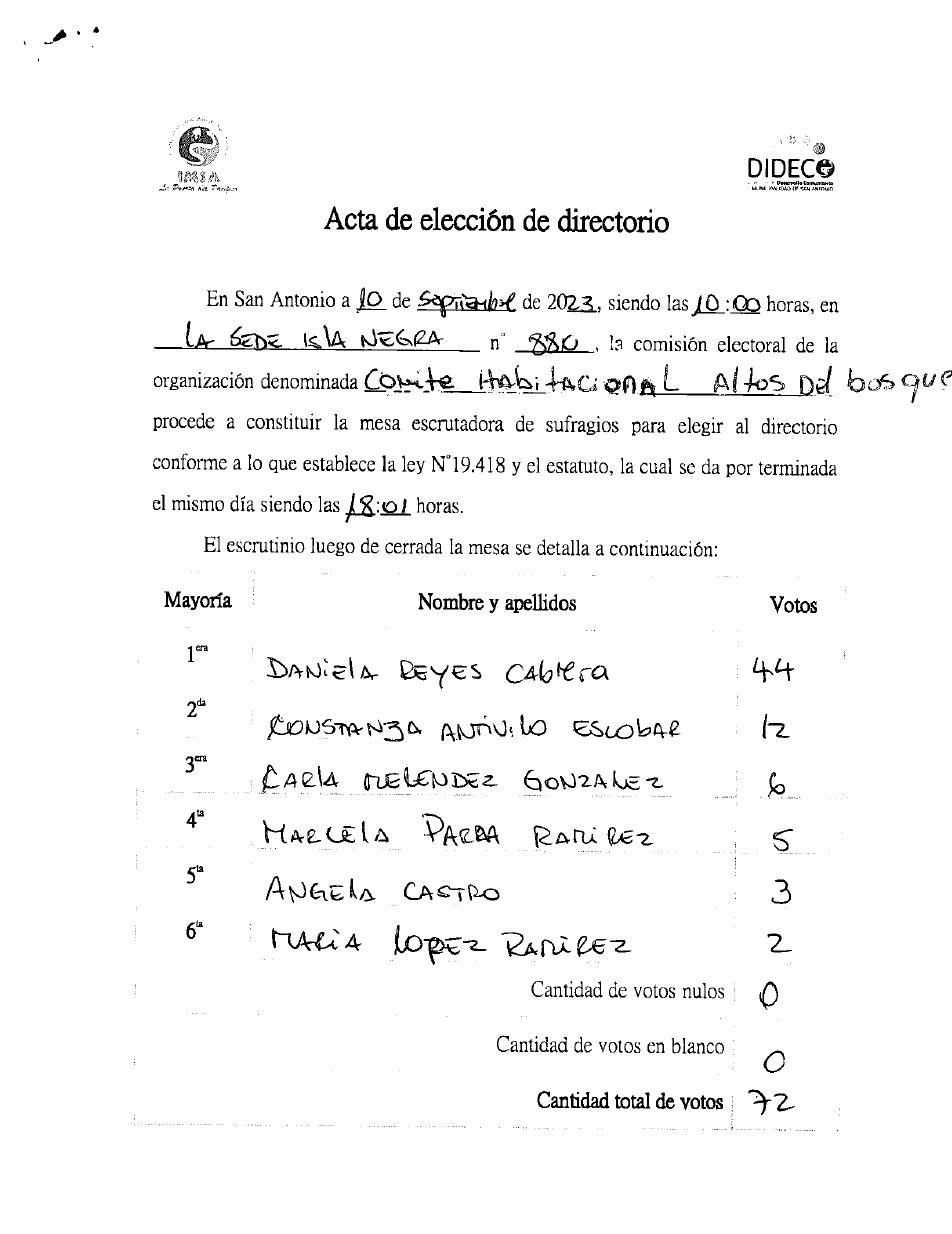 IMSA
DIDECO
Desarrollo Comunitario
MUNICIPALIDAD DE SAN ANTONIO
Acta de elección de directorio
En San Antonio a 10 de Septiembre de 2023, siendo las 10:00 horas, en
LA SEDE ISLA NEGRA n° 880, la comisión electoral de la
organización denominada Comite Habitacional Altos Del bosque
procede a constituir la mesa escrutadora de sufragios para elegir al directorio
conforme a lo que establece la ley N°19.418 y el estatuto, la cual se da por terminada
el mismo día siendo las 18:01 horas.
El escrutinio luego de cerrada la mesa se detalla a continuación:
Mayoría Nombre y apellidos Votos
1era DANiElA REYES CAbrera 44
2da CONSTANZA ANTIVILO ESCObAR 12
3era CARlA MELENDEZ GONZALEZ 6
4ta MARCELA PARRA RAMIREZ 5
5ta ANGELA CASTRO 3
6ta MARIA LOPEZ RAMIREZ 2
Cantidad de votos nulos 0
Cantidad de votos en blanco 0
Cantidad total de votos 72